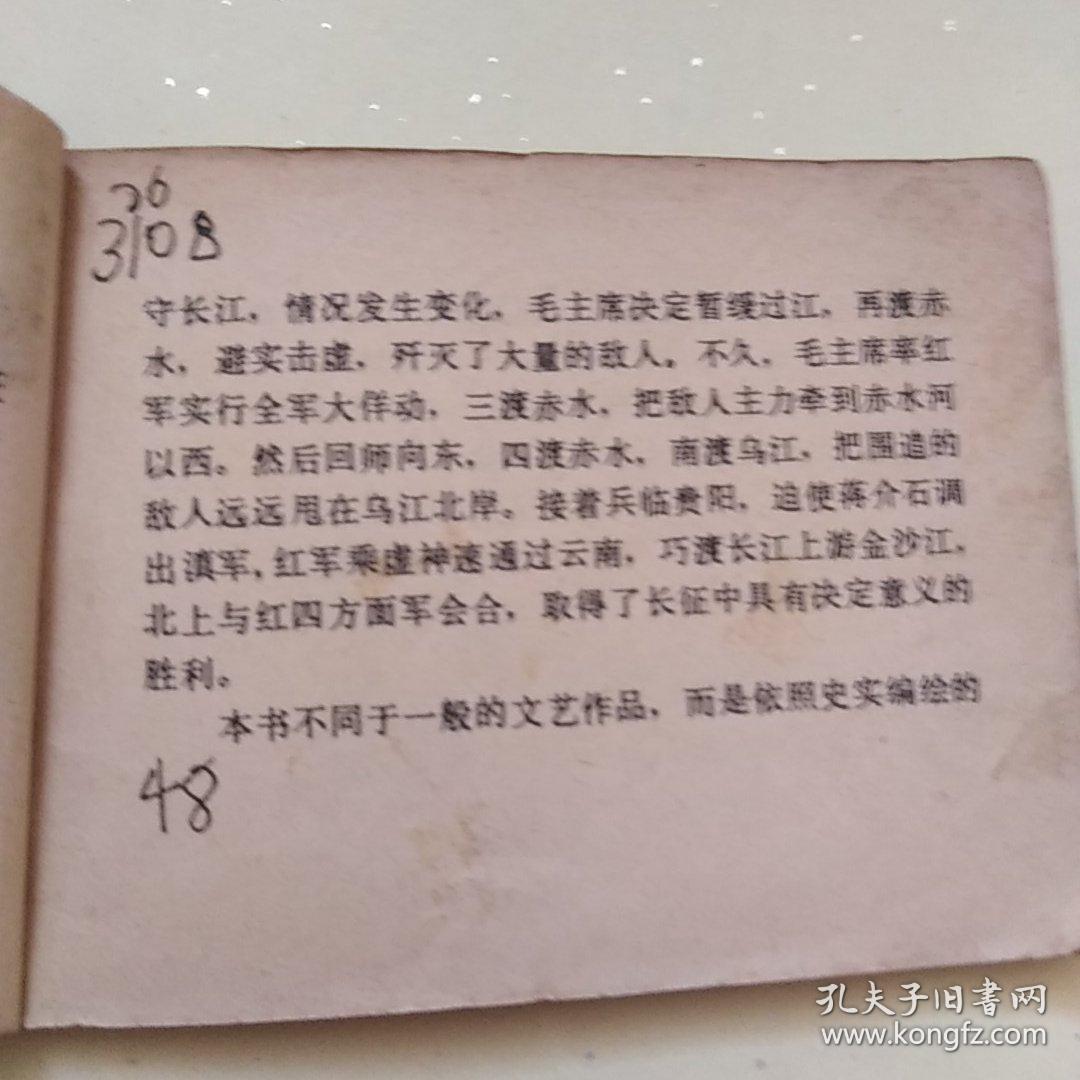 36
3108
守长江，情况发生变化，毛主席决定暂缓过江，再渡赤
水，避实击虚，歼灭了大量的敌人。不久，毛主席率红
军实行全军大佯动，三渡赤水，把敌人主力牵到赤水河
以西。然后回师向东，四渡赤水，南渡乌江，把围追的
敌人远远甩在乌江北岸。接着兵临贵阳，迫使蒋介石调
出滇军，红军乘虚神速通过云南，巧渡长江上游金沙江，
北上与红四方面军会合，取得了长征中具有决定意义的
胜利。
本书不同于一般的文艺作品，而是依照史实编绘的
48
孔夫子旧書网
www.kongfz.com